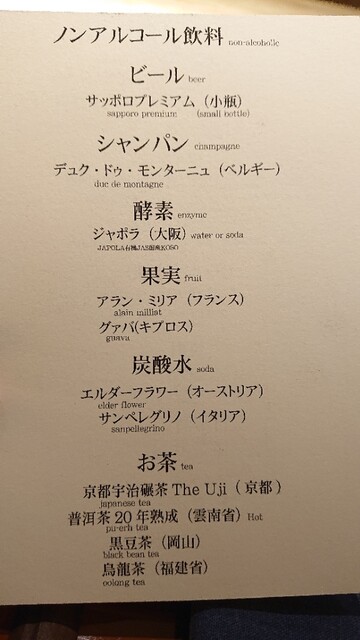 ノンアルコール飲料 non-alcoholic
ビール beer
サッポロプレミアム（小瓶）
sapporo premium (small bottle)
シャンパン champagne
デュク・ドゥ・モンターニュ（ベルギー）
duc de montagne
酵素 enzyme
ジャポラ（大阪）water or soda
JAPOLA有機JAS
果実 fruit
アラン・ミリア（フランス）
alain milliat
グァバ(キプロス)
guava
炭酸水 soda
エルダーフラワー（オーストリア）
elder flower
サンペレグリノ（イタリア）
sanpellegrino
お茶 tea
京都宇治碾茶 The Uji（京都）
japanese tea
普洱茶 20 年熟成（雲南省）Hot
pu-erh tea
黒豆茶（岡山）
black bean tea
烏龍茶（福建省）
oolong tea